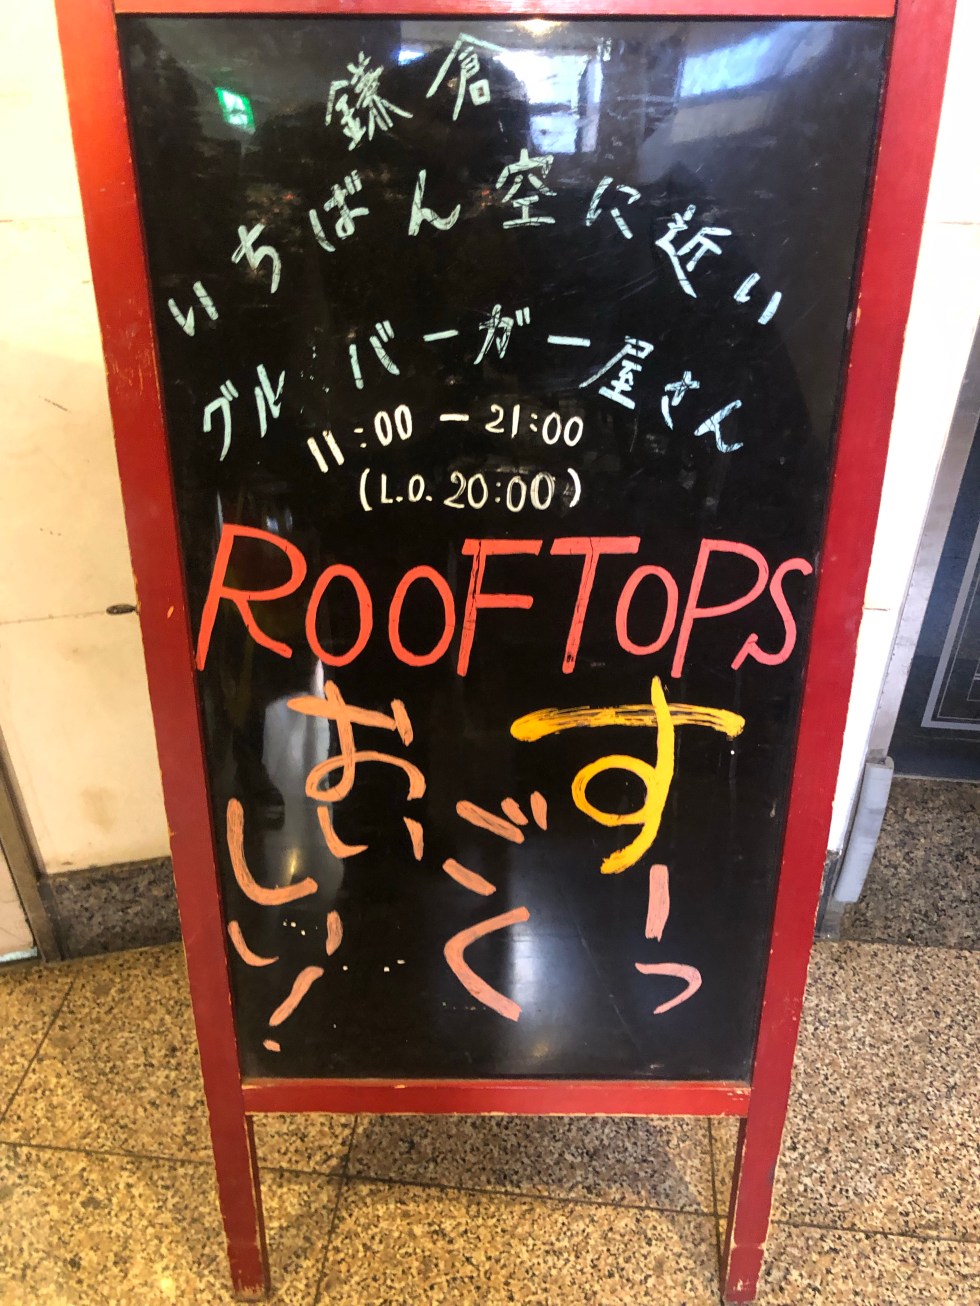 鎌倉
いちばん空に近い
グル バーガー屋さん
11:00 － 21:00
(L.O. 20:00)
ROOFTOPS
すーっ
ごく
おいしい!